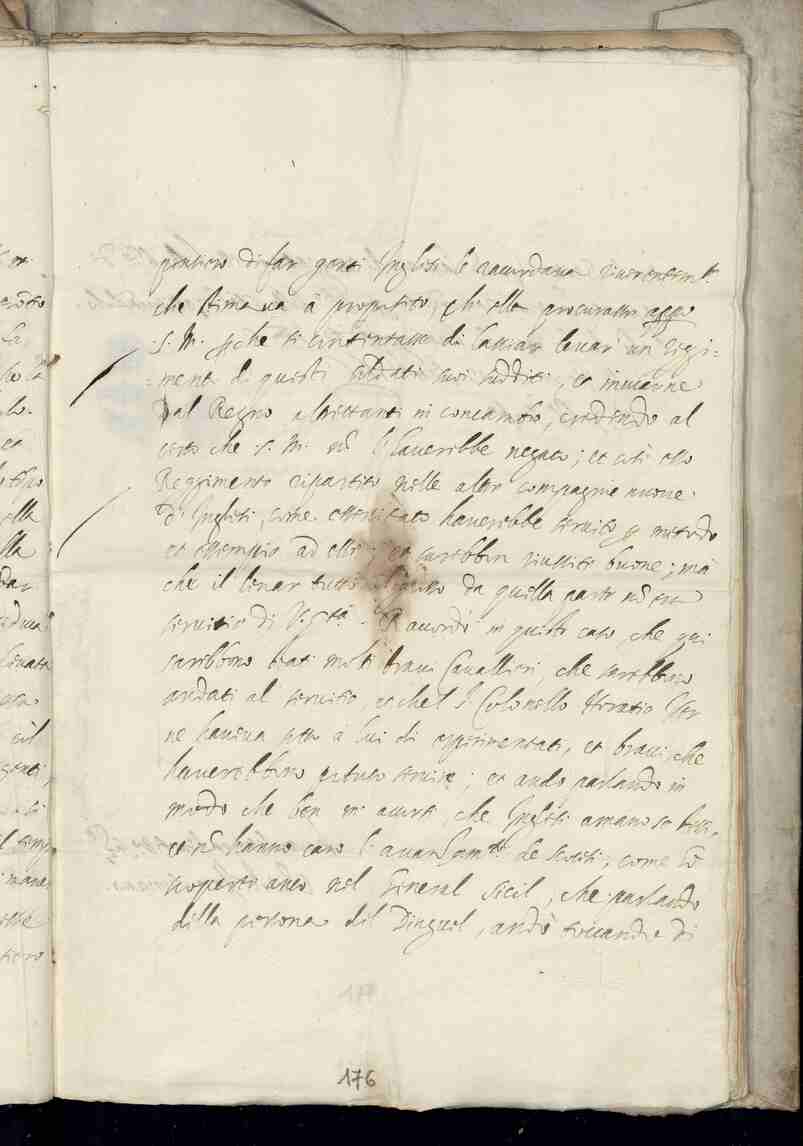 pensiero di far genti Inglesi le racordava riverentem.te
che stimava à proposito, ch'ella procurasse appo
S. M. che si contentasse di lassiar levar un regi=
=mento di questi soldati suoi sudditi, et inviarne
dal Regno altrettanti in concambio, credendo al
certo che S. M. nõ l'haverebbe negato; et così esso
Reggimento ripartito nelle altre compagnie nuove
d'Inglesi, come essercitato haverebbe servito p metodo
et essempio ad essi, et sarebben riussite buone; mà
che il levar tutto da quella parte nõ era
servitio di V. S.tà. Racordò in questo caso, che qui
sarebbono stati molti bravi Cavallieri, che sarebbono
andati al servitio, et che l S.r Colonello Horatio Ver
ne haveva sotto à lui di esperimentati, et bravi, che
haverebbono potuto servire; et andò parlando in
modo che ben m'accorsi, che Inglesi amano se stessi,
et nõ hanno caro l'avanzam.to de Scotesi, come hò
scoperto anco nel General Sicil, che parlando
della persona del Dinguel, andò toccando di
176